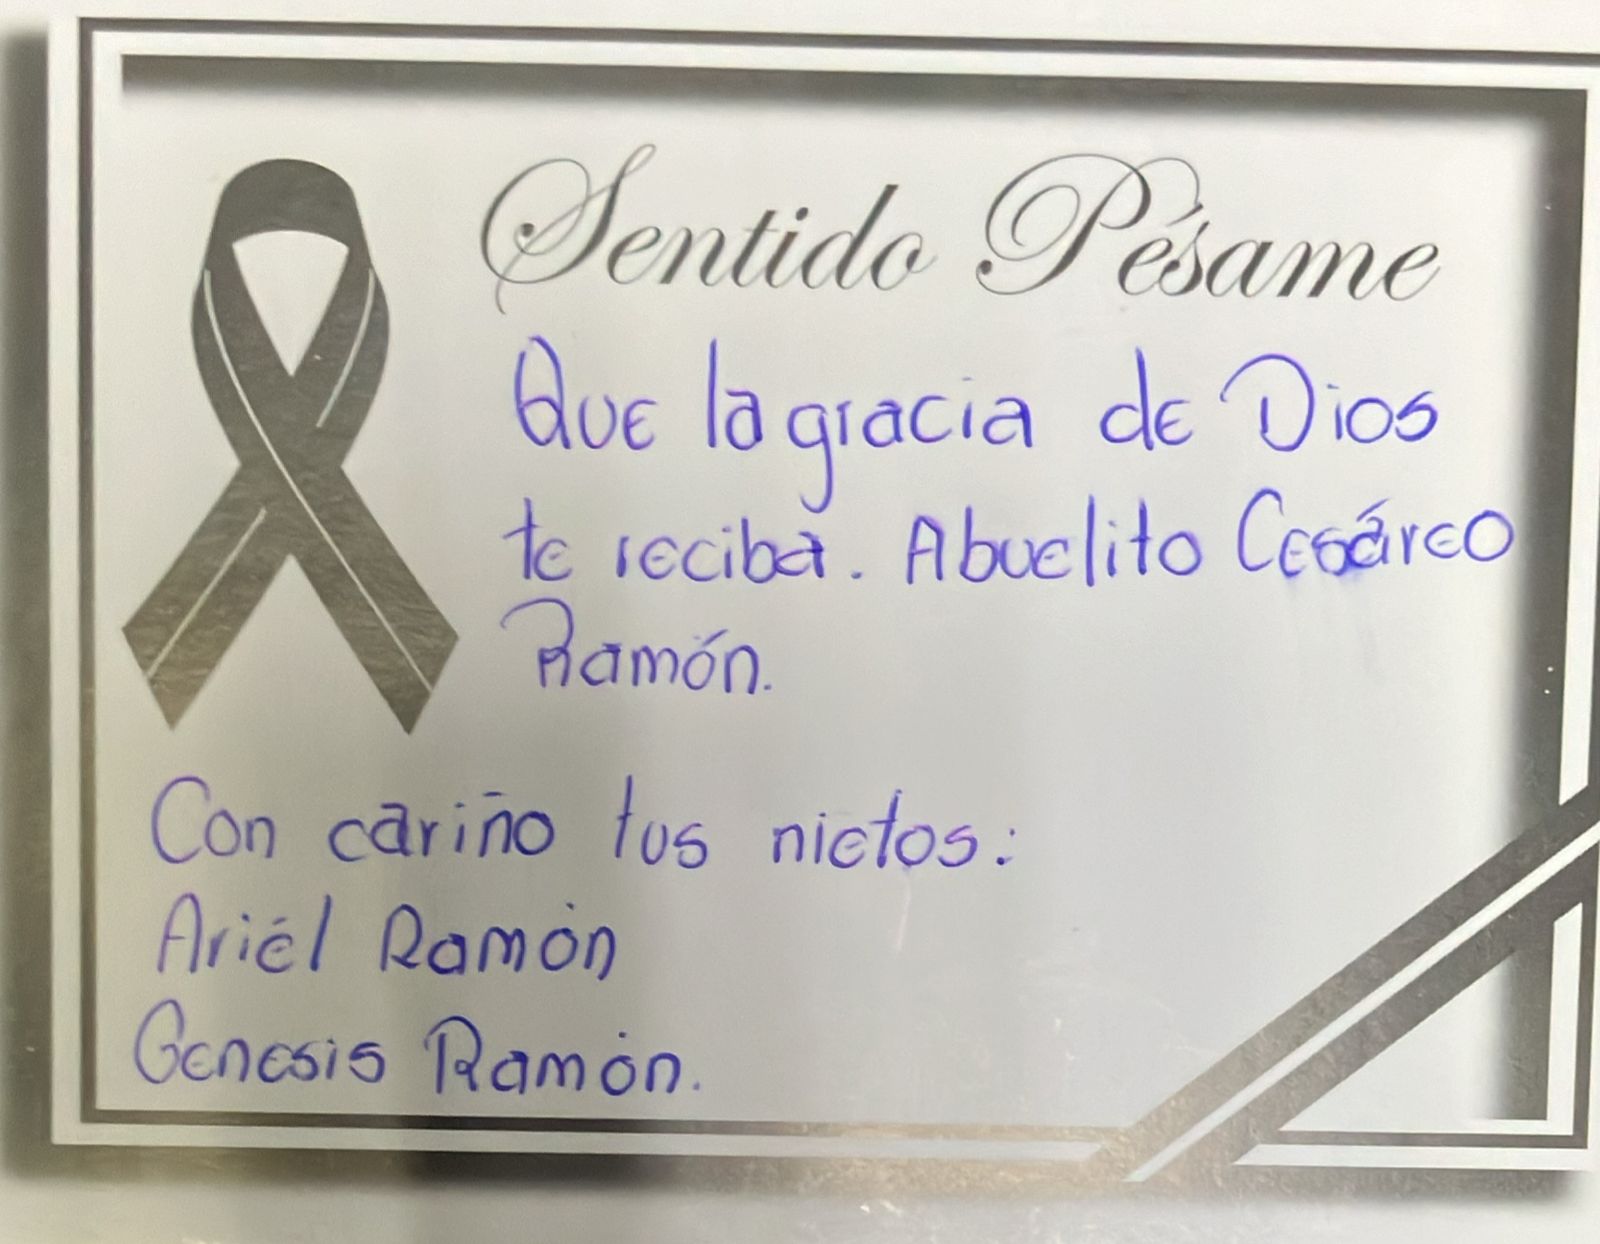 Sentido Pésame
Que la gracia de Dios
te reciba. Abuelito Cesáreo
Ramón.
Con cariño tus nietos:
Ariél Ramón
Genesis Ramón.